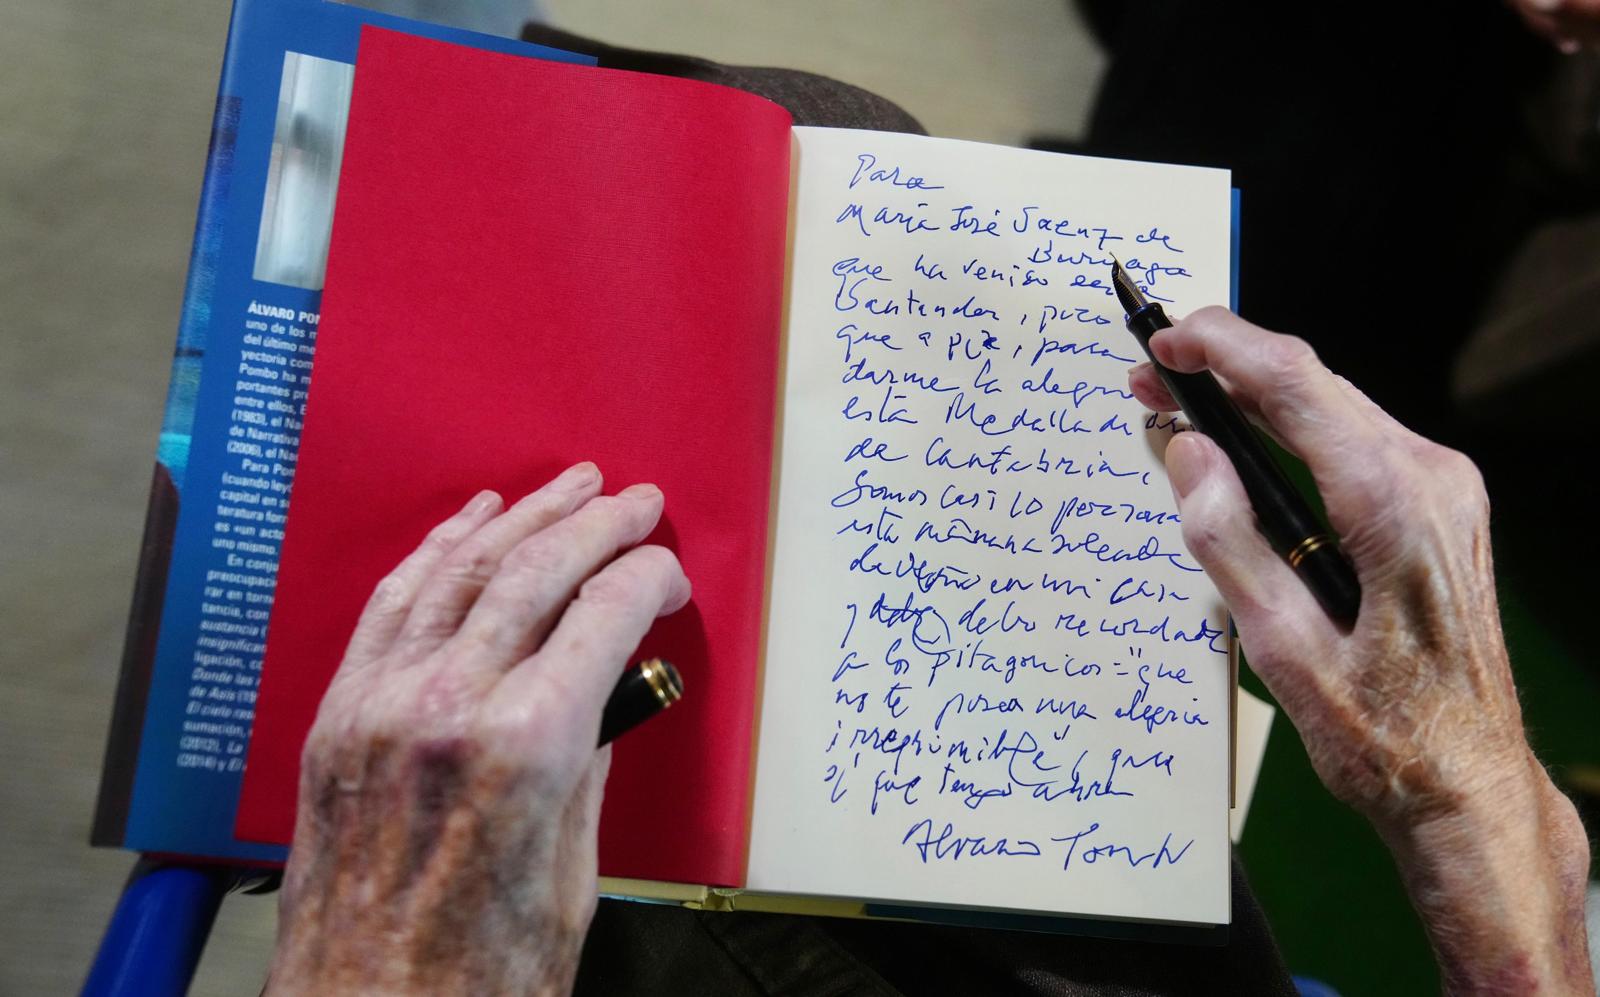 ÁLVARO POM
uno de los m
del último me
yectoria com
Pombo ha m
portantes pre
entre ellos, E
(1983), el Na
de Narrativa
(2006), el Na
Para Pom
(cuando leyó
capital en s
teratura for
es «un acto
uno mismo.
En conju
preocupació
rar en torn
tancia, con
sustancia (
insignifican
ligación, co
Donde las
de Asís (19
El cielo ras
sumación,
(2012), La
(2014) y El
Para
María José Saenz de
Buruaga
que ha venido
Santander, poco
que a pie, para
darme la alegr
esta Medalla de
de Cantabria,
Somos casi lo
esta mañana soleada
de en mi casa
y debo recordarle
a los pitagóricos = "que
no te posea una alegría
irreprimible",
que tengo ahora
Alvaro Pombo